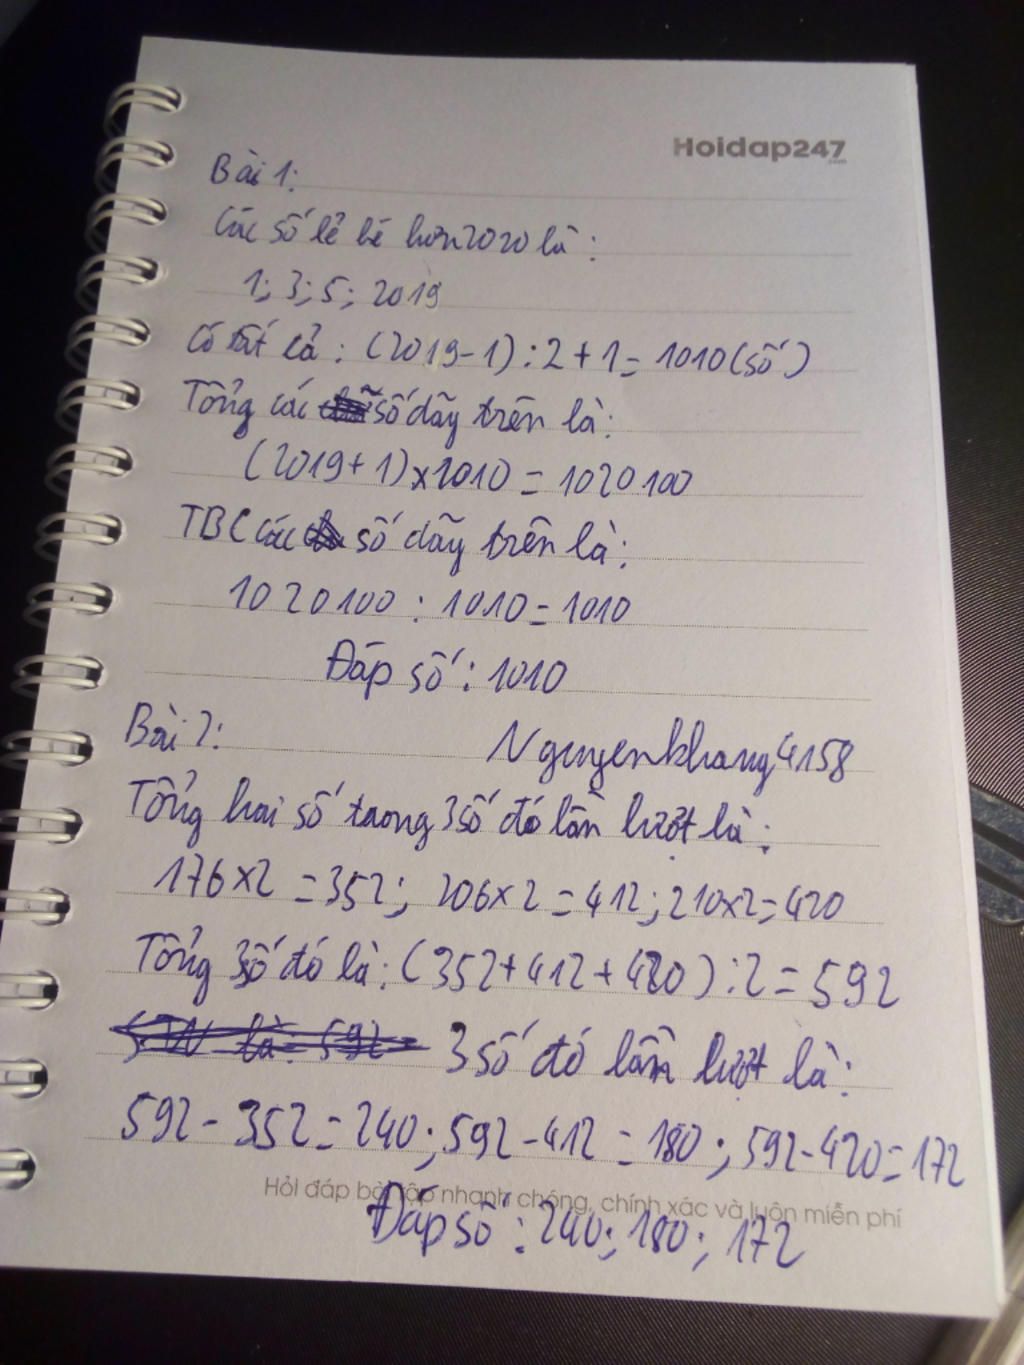 Hoidap247
.com
Bài 1:
Các số lẻ bé hơn 2020 là:
1; 3; 5; 2019
Có tất cả: (2019-1):2+1=1010(số)
Tổng các số dãy trên là:
(2019+1)x1010=1020100
TBC các số dãy trên là:
1020100:1010=1010
Đáp số: 1010
Bài 2:
Nguyenkhang4158
Tổng hai số trong 3 số đó lần lượt là:
176x2=352; 206x2=412; 210x2=420
Tổng 3 số đó là: (352+412+420):2=592
3 số đó lần lượt là:
592-352=240; 592-412=180; 592-420=172
Hỏi đáp bài tập nhanh chóng, chính xác và luôn miễn phí
Đáp số: 240; 180; 172